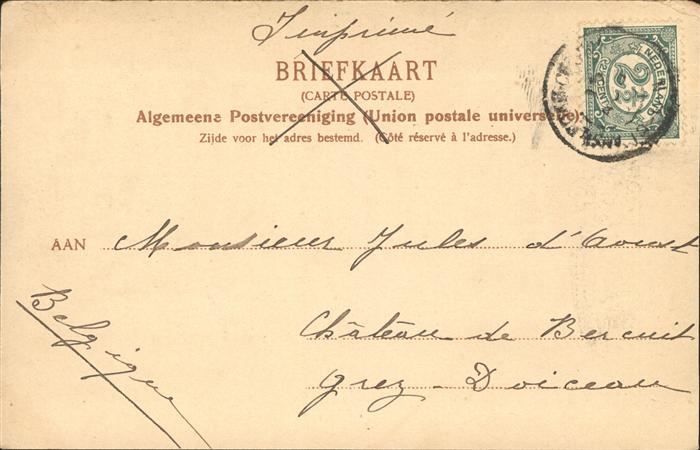 Imprimé
BRIEFKAART
(CARTE POSTALE)
Algemeene Postvereeniging (Union postale universelle).
Zijde voor het adres bestemd. (Côté réservé à l'adresse.)
NEDERLAND
2½
CENT
AAN Monsieur Jules d'Aoust
Château de Bercuit
Grez-Doiceau
Belgique